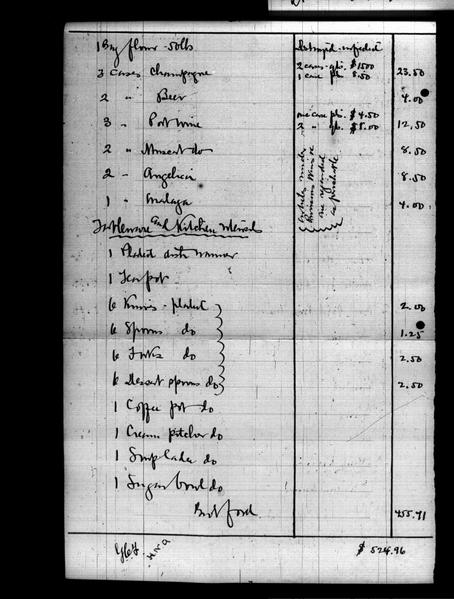 1 Bag flour 50lbs
2 cases qts. $15.00
3 Cases Champagne 1 case pts. 8.50 23.50
2 " Beer 4.00
3 " Port wine one case pts. $4.50 12.50
2 " qts. $8.00
2 " Muscat do 8.50
2 " Angelica 8.50
1 " Malaga 4.00
and Kitchen Utensils
1 Plated dish warmer
1 Teapot
6 Knives - plated 2.00
6 Spoons do 1.25
6 Forks do 2.50
6 Dessert spoons do 2.50
1 Coffee pot do
1 Cream pitcher do
1 Soup Ladle do
1 Sugar bowl do
Brot ford 455.71
$ 524.96